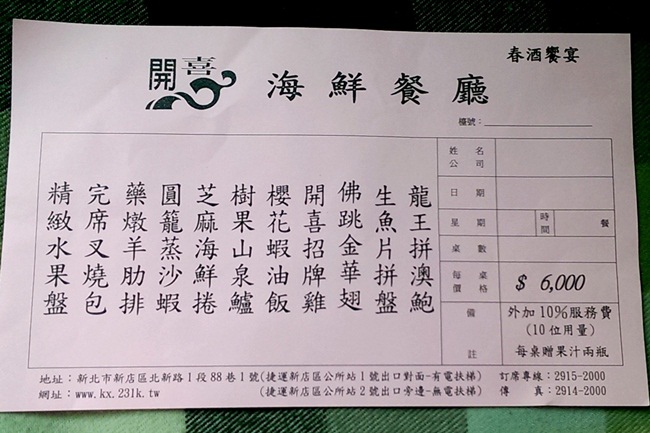 春酒饗宴
開喜 海鮮餐廳
檯號：
龍王拼澳鮑
生魚片拼盤
佛跳金華翅
開喜招牌雞
櫻花蝦油飯
樹果山泉鱸
芝麻海鮮捲
圓籠蒸沙蝦
藥燉羊肋排
完席叉燒包
精緻水果盤
姓名
公司
日期
星期 時間 餐
桌數
每桌價格 $ 6,000
備註 外加10%服務費
(10位用量)
每桌贈果汁兩瓶
地址：新北市新店區北新路1段88巷1號(捷運新店區公所站1號出口對面-有電扶梯) 訂席專線：2915-2000
網址：www.kx.231k.tw (捷運新店區公所站2號出口旁邊-無電扶梯) 傳 真：2914-2000